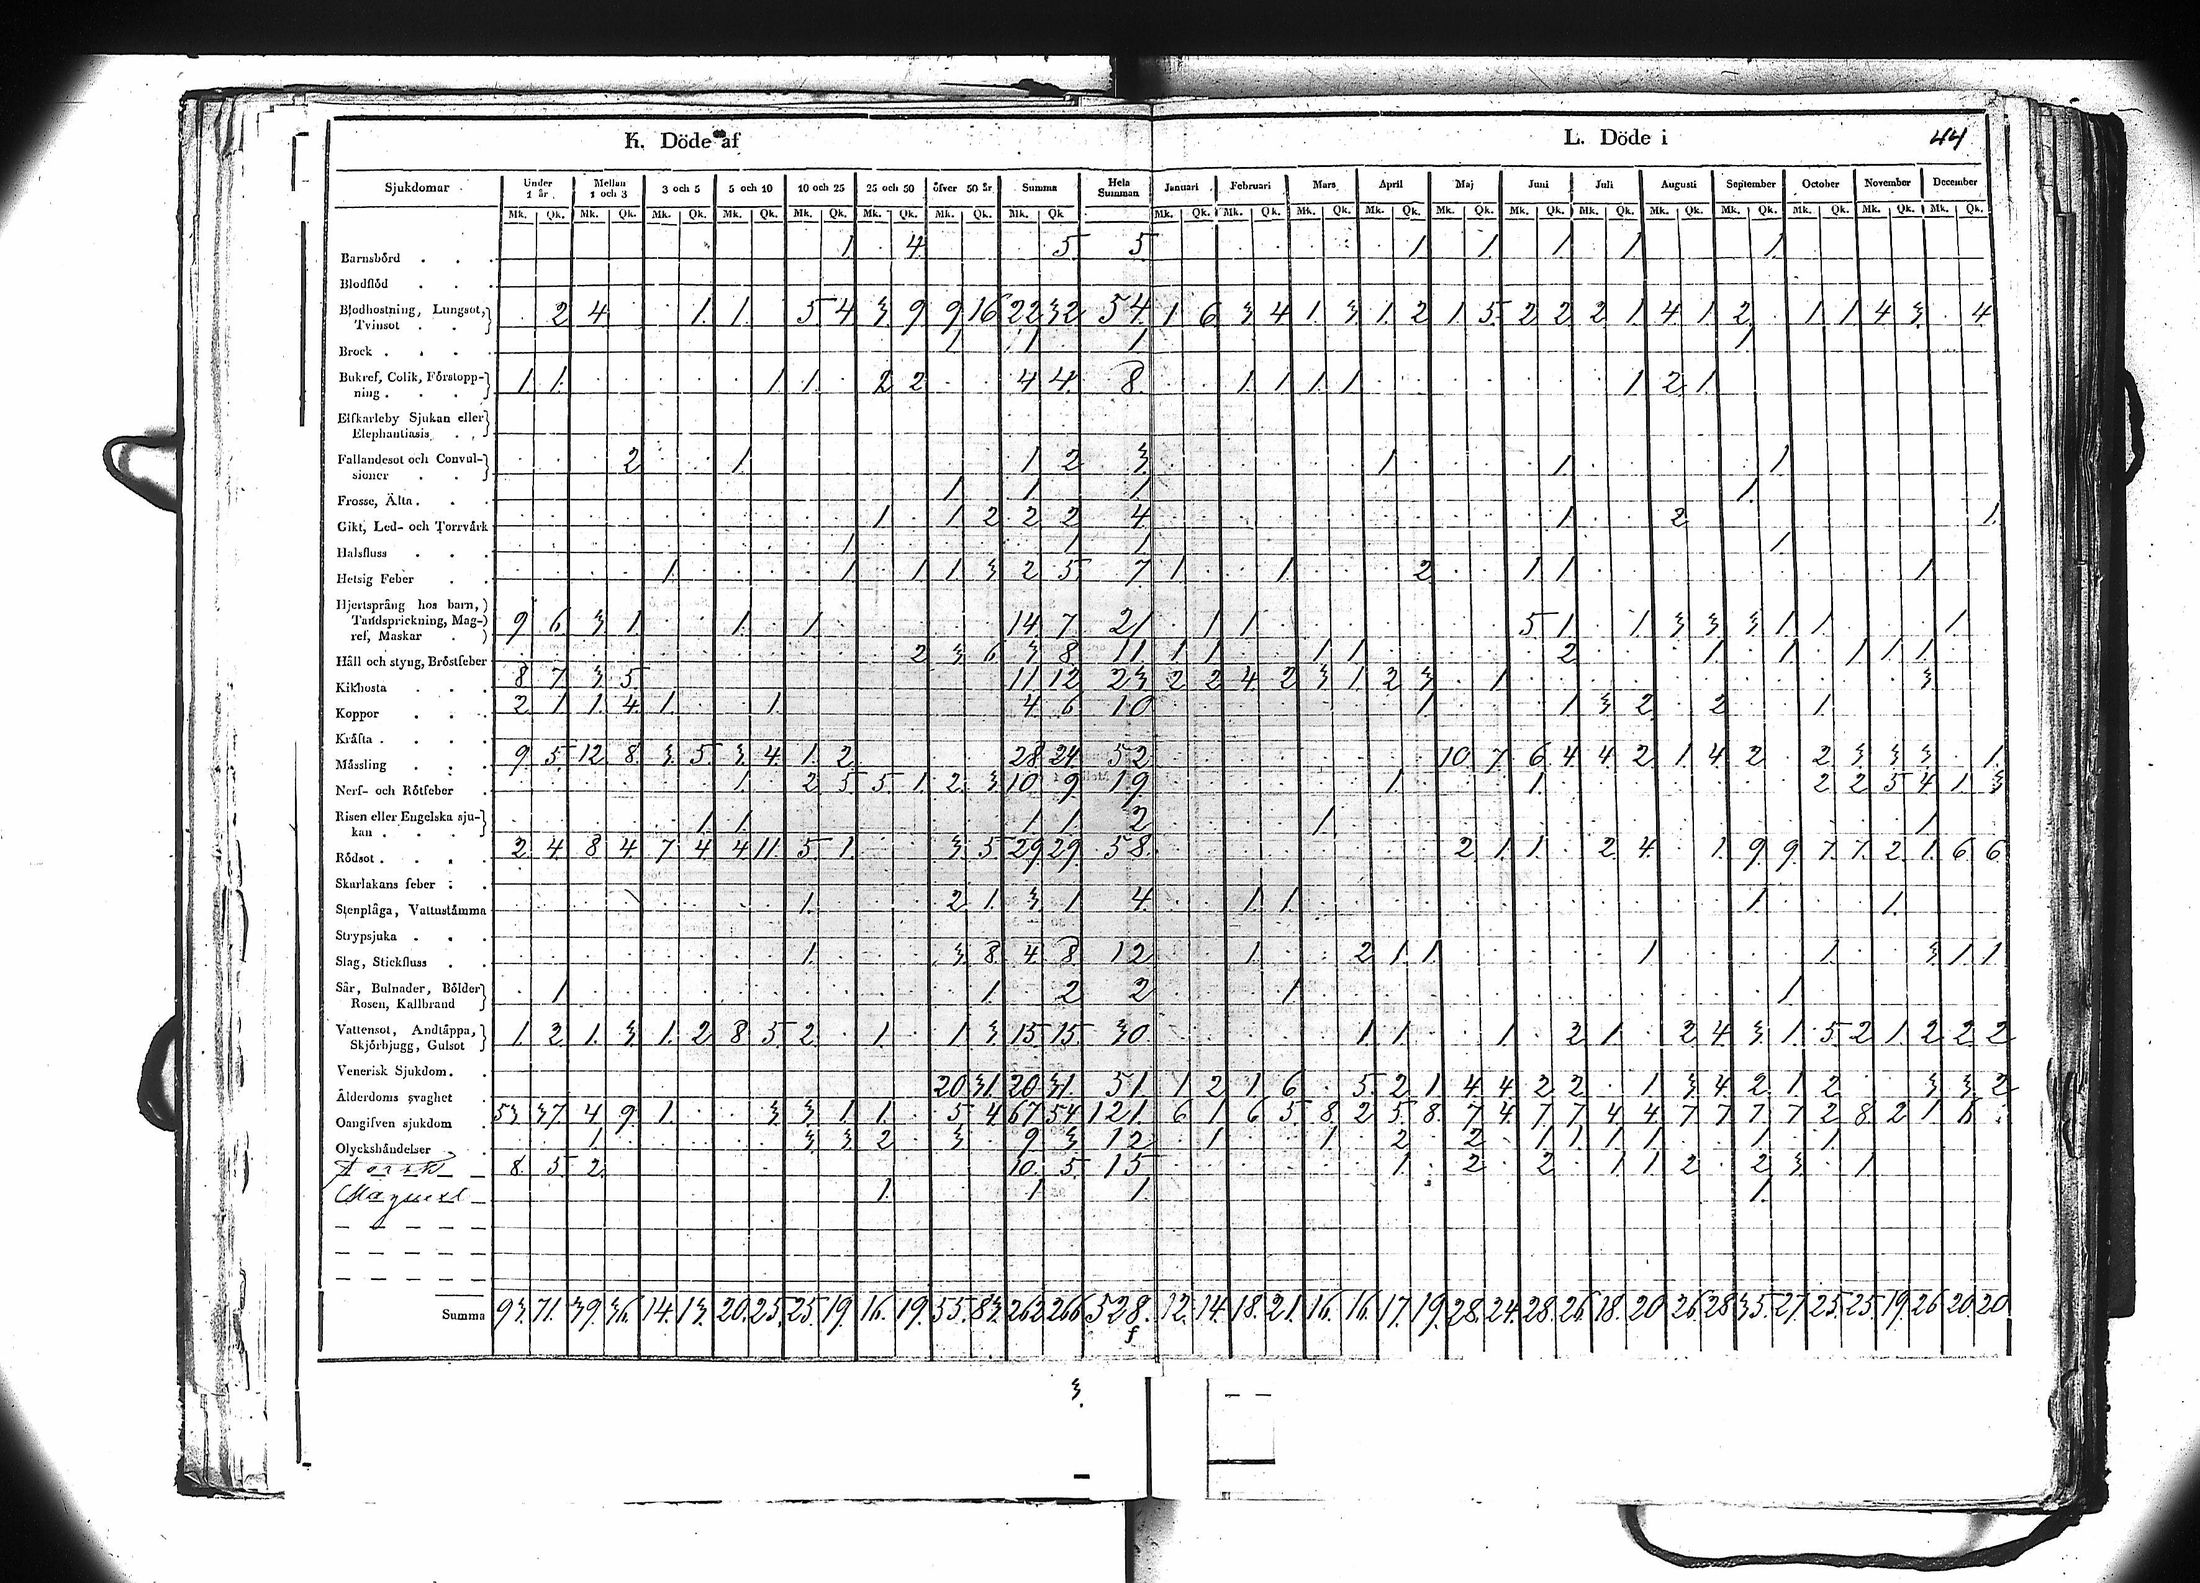 K. Döde af
L. Döde i 44
Sjukdomar Under 1 år. Mellan 1 och 3 3 och 5 5 och 10 10 och 25 25 och 50 öfver 50 år. Summa Hela Summan Januari Februari Mars April Maj Juni Juli Augusti September October November December
Mk. Qk. Mk. Qk. Mk. Qk. Mk. Qk. Mk. Qk. Mk. Qk. Mk. Qk. Mk. Qk. Mk. Qk. Mk. Qk. Mk. Qk. Mk. Qk. Mk. Qk. Mk. Qk. Mk. Qk. Mk. Qk. Mk. Qk. Mk. Qk. Mk. Qk. Mk. Qk.
Barnsbörd . . . 1 4 5 5 1 1 1 1 1
Blodflöd . . .
Blodhostning, Lungsot,
Tvinsot . . 2 4 1. 1. 5 4 3 9 9 16 22 32 54 1 6 3 4 1. 3 1. 2 1. 5 2 2 2 1. 4 1. 2 1. 1 4 3 4
Brock . . . . 1 1 1 1
Bukref, Colik, Förstopp-
ning . . . 1 1. 1 1. 2 2 4 4. 8. 1. 1. 1. 1 1 2 1.
Elfkarleby Sjukan eller
Elephantiasis . .
Fallandesot och Convul-
sioner . . 2 1. 1 2 3 1 1 1
Frosse, Älta . . . 1 1 1 1.
Gikt, Led- och Torrvärk 1 1 2 2 2 4 1 2 1.
Halsfluss . . . 1 1 1 1
Hetsig Feber . . 1 1 1 1 3 2 5 7 1 1 2 1 1 1
Hjertsprång hos barn,
Tandsprickning, Mag-
ref, Maskar . 9 6 3 1. 1. 1 14 7. 21 1 1 5 1. 1. 3 3 3 1. 1. 1.
Håll och styng, Bröstfeber 2 3 6 3 8 11 1 1 1 1 2 1. 1. 1. 1. 1.
Kikhosta . . . 8 7 3 5 11 12 23 2 2 4. 2 3 1. 2 3 1 3.
Koppor . . . 2 1 1. 4. 1. 1. 4 6 10 1 1 3 2 2 1.
Kräfta . . . .
Mässling . . . 9 5 12 8. 3. 5 3. 4. 1. 2. 28 24 52 10 7. 6 4 4 2 1 4 2 2 3 3 3 1.
Nerf- och Rötfeber . 1. 2 5 5 1. 2. 3 10 9 19 1 1. 2 2 5 4 1 3
Risen eller Engelska sju-
kan . . . 1. 1. 1 1 2 1. 1.
Rödsot . . . . 2 4 8 4 7 4 4 11. 5 1. 3 5 29 29 58 2 1. 1. 2 4. 1. 9 9. 7. 7. 2 1. 6 6
Skarlakans feber . .
Stenplåga, Vattustämma 1. 2 1. 3 1 4. 1. 1. 1. 1.
Strypsjuka . . .
Slag, Stickfluss . . 1. 3. 8. 4 8 12 1. 2 1. 1. 1 1 3. 1 1
Sår, Bulnader, Bölder
Rosen, Kallbrand 1 1. 2 2 1 1
Vattensot, Andtäppa,
Skjörbjugg, Gulsot 1. 2. 1. 3 1. 2 8 5. 2 1 1 3 15 15. 30 1 1. 1. 2 1. 2 4 3 1. 5 2 1. 2 2 2
Venerisk Sjukdom . .
Ålderdoms svaghet . 20 31. 20 31. 51. 1 2 1 6 5 2 1 4 4 2 2 1 3 4 2 1. 2 3 3 2
Oangifven sjukdom . 53 37 4 9 1. 3 3 1 1. 5 4 67 54 121. 6 1 6 5. 8 2 5 8. 7 4. 7. 7. 4 4 7. 7. 7. 7 2 8. 2 1.
Olyckshändelser . 1. 3 3 2 3 9 3 12 1 1 2 2 1 1. 1 1 1 1.
8. 5 2. 10. 5 15 1. 2 2 1 1 2 2 3. 1
1. 1 1 1.
Summa 93. 71. 39. 36. 14. 13. 20. 25. 25. 19. 16. 19. 55. 83. 262 266 528. 12. 14. 18. 21. 16. 16. 17. 19. 28. 24. 28. 26. 18. 20. 26. 28. 35. 27. 25. 25. 19. 26. 20. 20.
3.